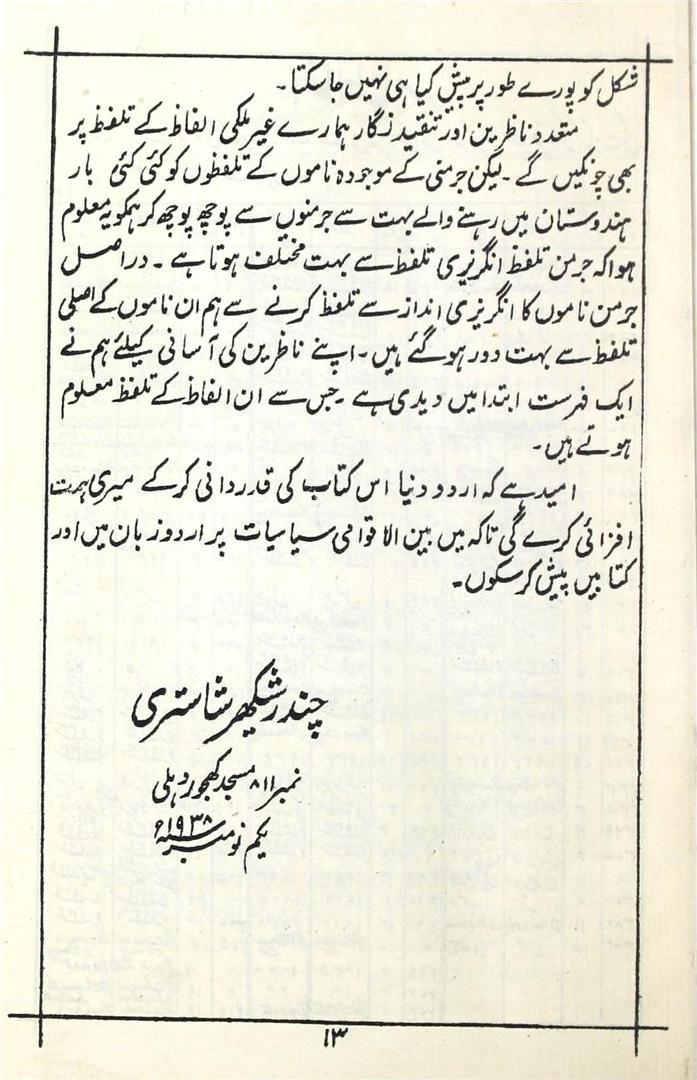 شکل کو پورے طور پر پیش کیا ہی نہیں جا سکتا۔
متعدد ناظرین اور تنقید نگار ہمارے غیر ملکی الفاظ کے تلفظ پر
بھی چونکیں گے ۔ لیکن جرمنی کے موجودہ ناموں کے تلفظوں کو کئی کئی بار
ہندوستان میں رہنے والے بہت سے جرمنوں سے پوچھ پوچھ کر ہمکو یہ معلوم
ہوا کہ جرمن تلفظ انگریزی تلفظ سے بہت مختلف ہوتا ہے ۔ دراصل
جرمن ناموں کا انگریزی انداز سے تلفظ کرنے سے ہم ان ناموں کے اصلی
تلفظ سے بہت دور ہو گئے ہیں۔ اپنے ناظرین کی آسانی کیلئے ہم نے
ایک فہرست ابتدا میں دیدی ہے ۔ جس سے ان الفاظ کے تلفظ معلوم
ہوتے ہیں۔
امید ہے کہ اردو دنیا اس کتاب کی قدردانی کر کے میری ہمت
افزائی کرے گی تاکہ میں بین الاقوامی سیاسیات پر اردو زبان میں اور
کتابیں پیش کر سکوں۔
چندر شیکھر شاستری
نمبر ۸۱۱ مسجد کھجور دہلی
یکم نومبر ۱۹۳۸ء
۱۳